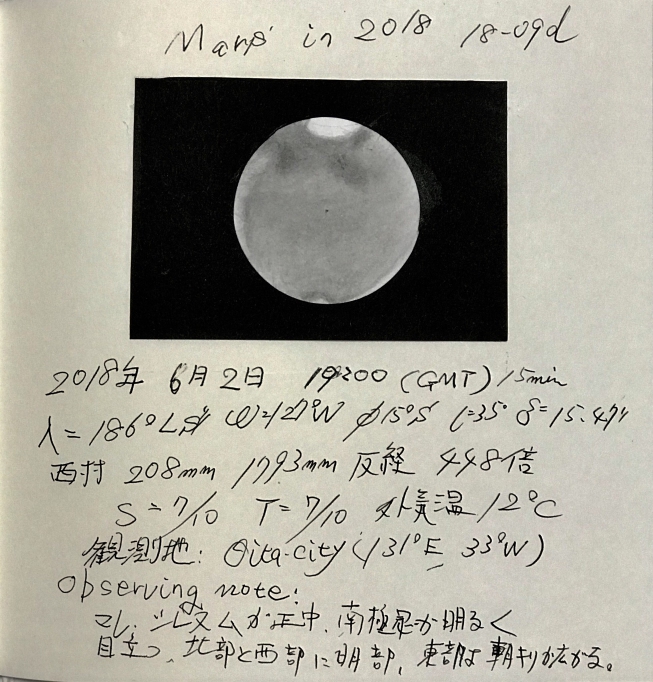 Mars in 2018 18-09d
2018年 6月2日 19:00 (GMT) 15min
λ=186°Ls ω=127°W φ15°S ι=35° δ=15.47"
西村 208mm 1793mm 反経 448倍
S=7/10 T=7/10 外気温 12°C
観測地: Oita-city (131°E, 33°W)
Observing note:
マレ・シレヌムが正中、南極冠が明るく
目立つ、北部と西部に明部、東部は朝霧が広がる。